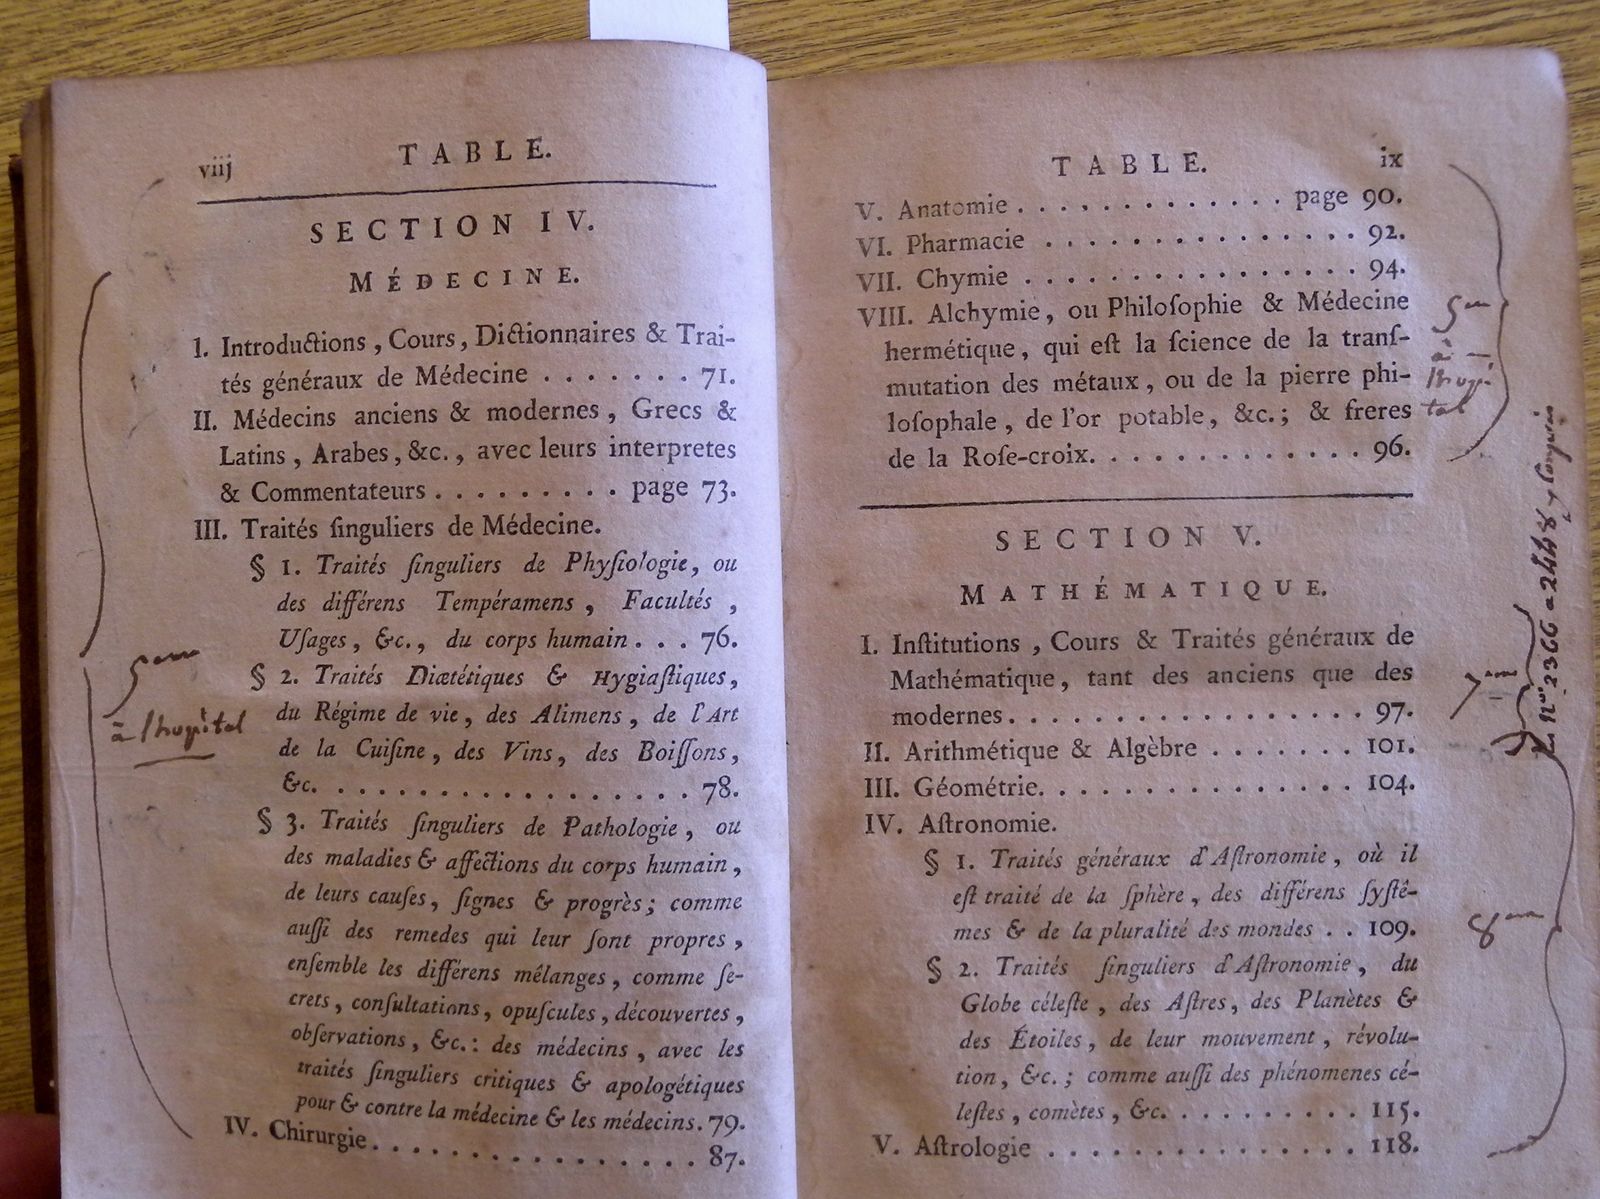 viij
TABLE.
SECTION IV.
MÉDECINE.
I. Introductions, Cours, Dictionnaires & Trai-
tés généraux de Médecine . . . . . . . 71.
II. Médecins anciens & modernes, Grecs &
Latins, Arabes, &c., avec leurs interpretes
& Commentateurs . . . . . . . . . page 73.
III. Traités ſinguliers de Médecine.
§ 1. Traités ſinguliers de Phyſiologie, ou
des différens Tempéramens, Facultés,
Uſages, &c., du corps humain . . . 76.
§ 2. Traités Diætétiques & Hygiaſtiques,
du Régime de vie, des Alimens, de l'Art
de la Cuiſine, des Vins, des Boiſſons,
&c. . . . . . . . . . . . . . . . . . . 78.
§ 3. Traités ſinguliers de Pathologie, ou
des maladies & affections du corps humain,
de leurs cauſes, ſignes & progrès; comme
auſſi des remedes qui leur ſont propres,
enſemble les différens mêlanges, comme ſe-
crets, conſultations, opuſcules, découvertes,
obſervations, &c.: des médecins, avec les
traités ſinguliers critiques & apologétiques
pour & contre la médecine & les médecins. 79.
IV. Chirurgie . . . . . . . . . . . . . . . . 87.
5eme
à lhopital
TABLE.
ix
V. Anatomie . . . . . . . . . . . . . page 90.
VI. Pharmacie . . . . . . . . . . . . . . . 92.
VII. Chymie . . . . . . . . . . . . . . . . 94.
VIII. Alchymie, ou Philoſophie & Médecine
hermétique, qui eſt la ſcience de la tranſ-
mutation des métaux, ou de la pierre phi-
loſophale, de l'or potable, &c.; & freres
de la Roſe-croix. . . . . . . . . . . . . 96.
5em
à
lhopi
tal
SECTION V.
MATHÉMATIQUE.
I. Inſtitutions, Cours & Traités généraux de
Mathématique, tant des anciens que des
modernes. . . . . . . . . . . . . . . . . 97.
II. Arithmétique & Algèbre . . . . . . . 101.
III. Géométrie. . . . . . . . . . . . . . . 104.
IV. Aſtronomie.
§ 1. Traités généraux d'Aſtronomie, où il
eſt traité de la ſphère, des différens ſyſtê-
mes & de la pluralité des mondes . . 109.
§ 2. Traités ſinguliers d'Aſtronomie, du
Globe céleſte, des Aſtres, des Planètes &
des Étoiles, de leur mouvement, révolu-
tion, &c.; comme auſſi des phénomenes cé-
leſtes, comètes, &c. . . . . . . . . . . 115.
V. Aſtrologie . . . . . . . . . . . . . . . 118.
7eme
8eme
2366 a 2448 y compris